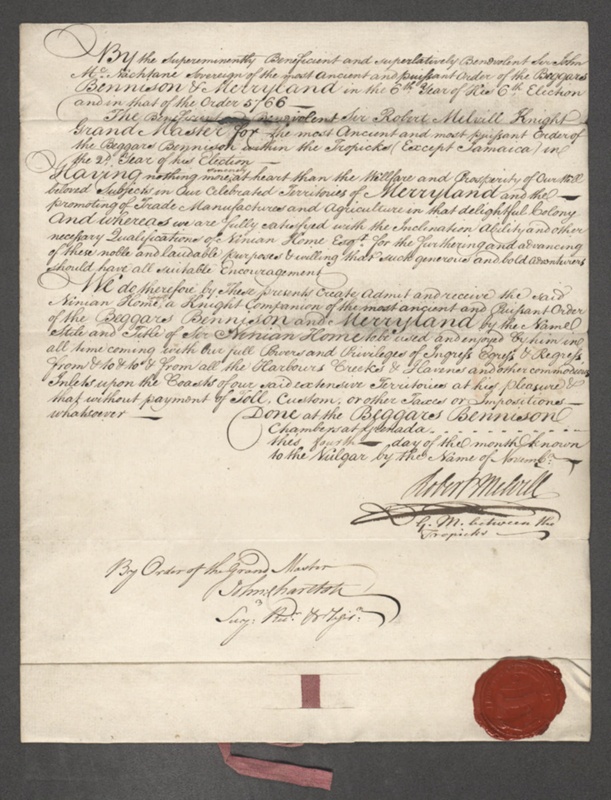 By the Supereminently Beneficent and superlatively Benevolent Sir John
Mc. Nachtane Sovereign of the most Ancient and puissant Order of the Beggars
Bennison & Merryland in the 6th Year of His 6th Election
and in that of the Order 5766
The Beneficent Benevolent Sir Robert Melvill Knight
Grand Master for the most Ancient and most puissant Order of
the Beggars Bennison within the Tropicks (Except Jamaica) in
the 2d. Year of his Election
Having nothing more at heart than the Wellfare and Prosperity of Our Well
beloved Subjects in Our Celebrated Territories of Merryland and the
promoting of Trade Manufactures and Agriculture in that delightful Colony
And whereas we are fully satisfied with the Inclination Ability and other
necessary Qualifications of Ninian Home Esqr. for the furthering and advancing
of these noble and laudable purposes & willing that such generous and bold adventurers
should have all suitable Encouragement
We do therefore by These presents Create Admit and receive the said
Ninian Home a Knight Companion of the most ancient and Puissant Order
of the Beggars Bennison and Merryland by the Name
Stile and Title of Sir Ninian Home to be used and enjoyed by him in
all time coming with Our full Powers and Privileges of Ingress Egress & Regress
from & to & to & from all the Harbours Creeks & Havens and other commodious
Inlets upon the Coasts of our said extensive Territories at his pleasure &
that without payment of Toll, Custom, or other Taxes or Impositions
whatsoever
Done at the Beggars Bennison
Chamber at Grenada
this fourth day of the month known
to the Vulgar by the Name of Novembr.
Robert Melvill
G. M. between the
Tropicks
By Order of the Grand Master
John